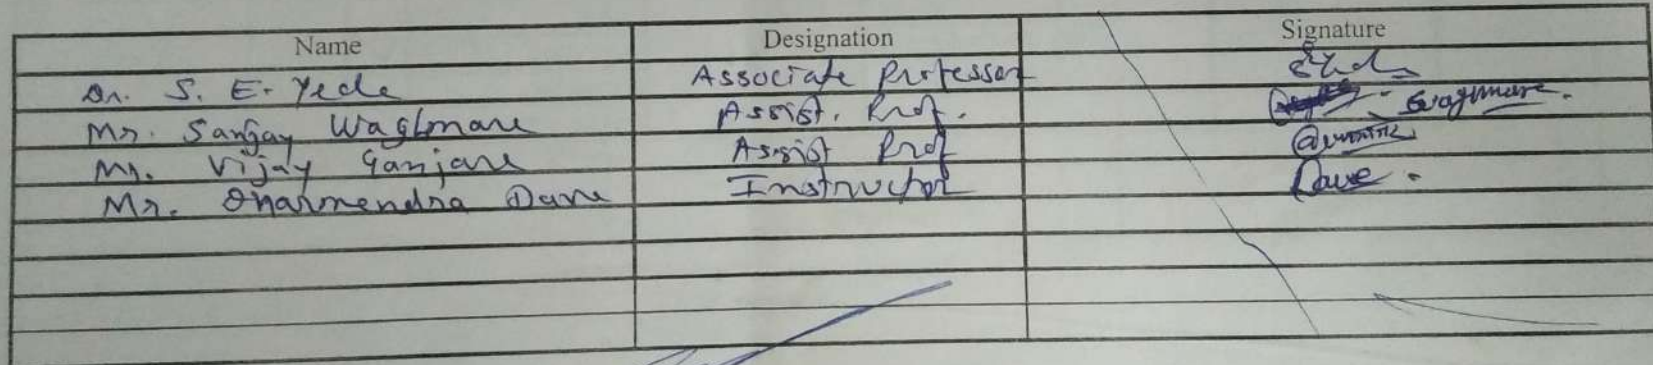 Name Designation Signature
Dr. S. E. Yede Associate Professor
Mr. Sanjay Waghmare Assist. Prof. Swaghmare.
Mr. Vijay Ganjare Assist Prof
Mr. Dharmendra Dave Instructor Dave